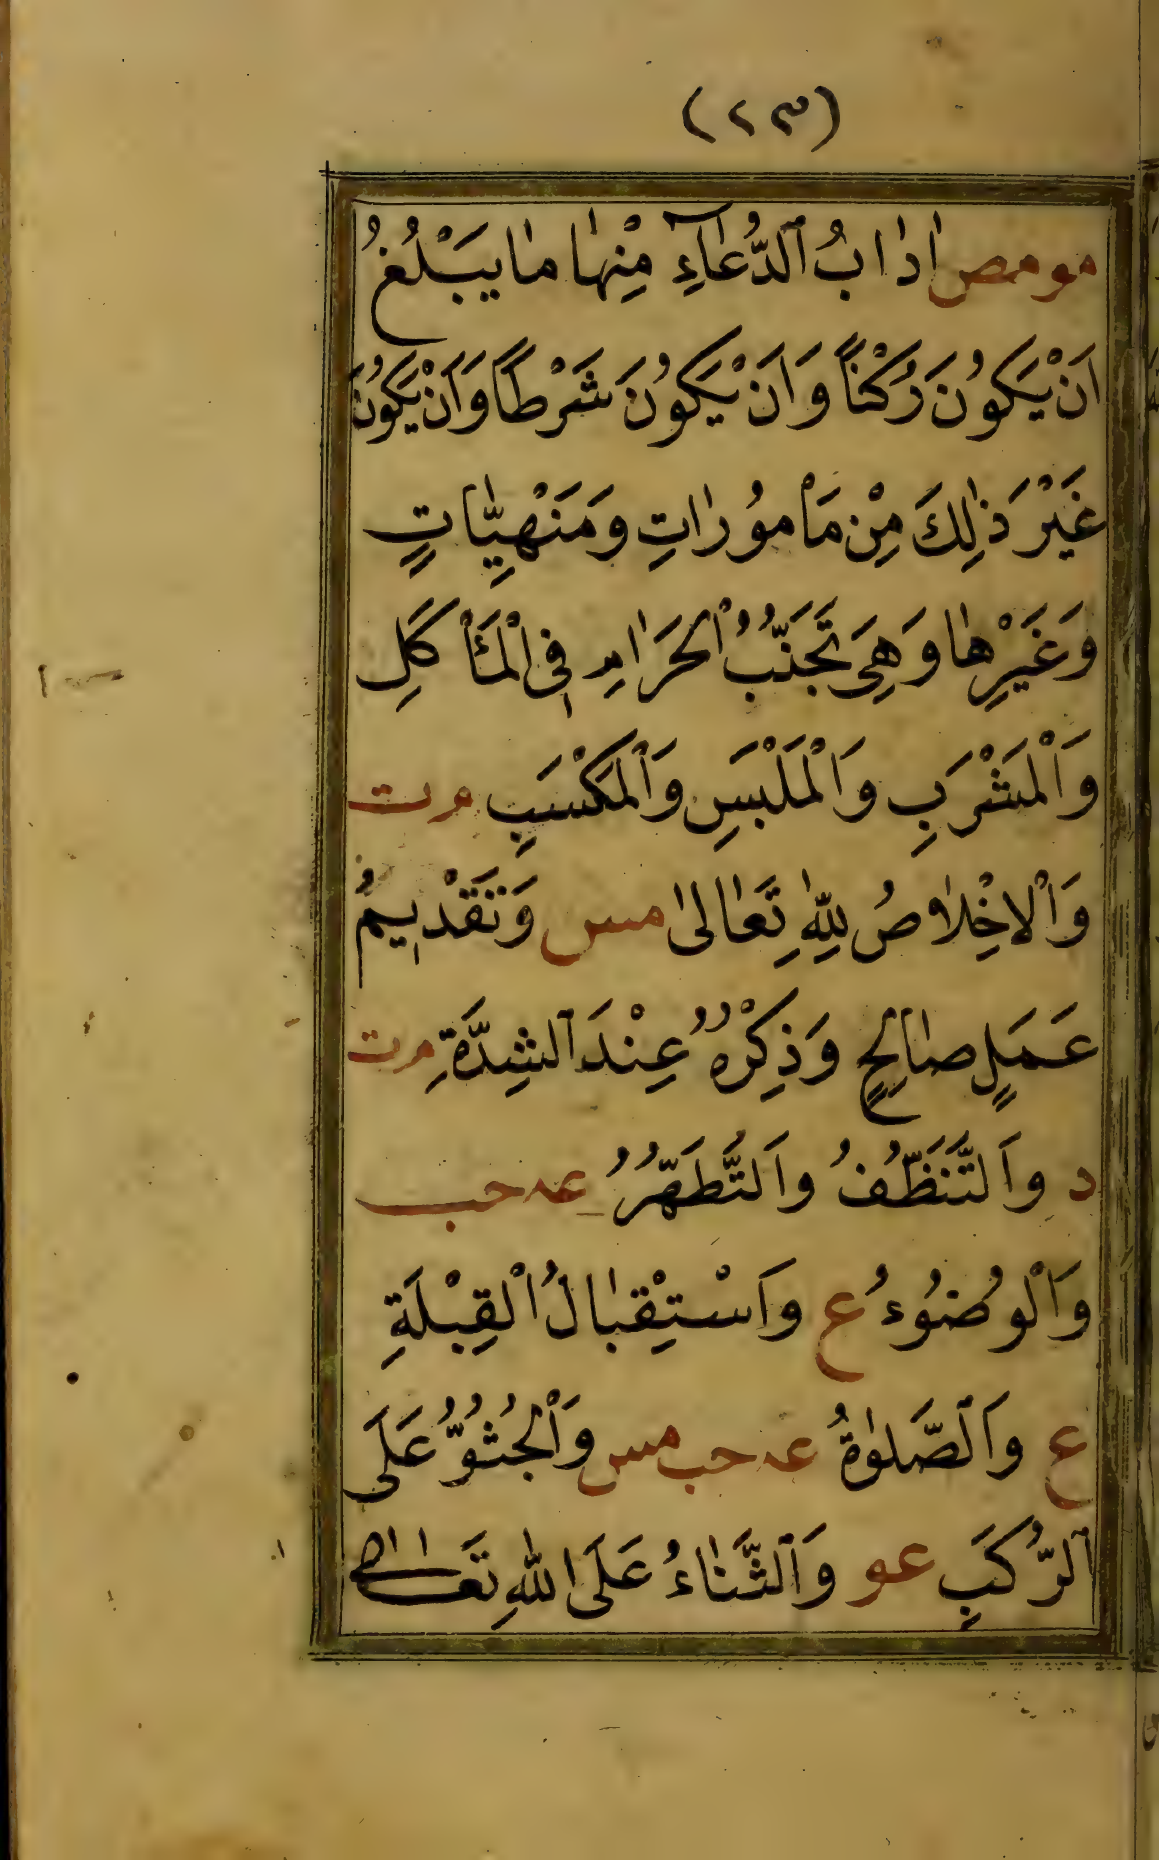 (٢٣)
مو مص اٰدٰابُ ٱلدُّعٰاۤءِ مِنْهٰا مٰا يَبْلُغُ
اَنْ يَكُونَ رُكْناً وَاَنْ يَكُونَ شَرْطاً وَاَنْ يَكُونَ
غَيْرَ ذٰلِكَ مِنْ مَاْمُورٰاتِ وَمَنْهِيّٰاتٍ
وَغَيْرِهٰا وَهِىَ تَجَنُّبُ ٱلْحَرَامِ فِى ٱلْمَأْكَلِ
وَٱلْمَشْرَبِ وَٱلْمَلْبَسِ وَٱلْمَكْسَبِ م ت
وَٱلْاِخْلٰاصُ لِلّٰهِ تَعٰالىٰ مس وَتَقْدِيمُ
عَمَلٍ صٰالِحٍ وَذِكْرُهُ عِنْدَ ٱلشِدَّةِ م ت
د وَٱلتَّنَظُّفُ وَٱلتَّطَهُّرُ عه حب
وَٱلْوُضُوءُ ع وَٱسْتِقْبٰالُ ٱلْقِبْلَةِ
ع وَٱلصَّلٰوةُ عه حب مس وَٱلْجُثُوُّ عَلَى
ٱلرُّكَبِ عو وَٱلثَّنٰاءُ عَلَى اللّٰهِ تَعَالٰى